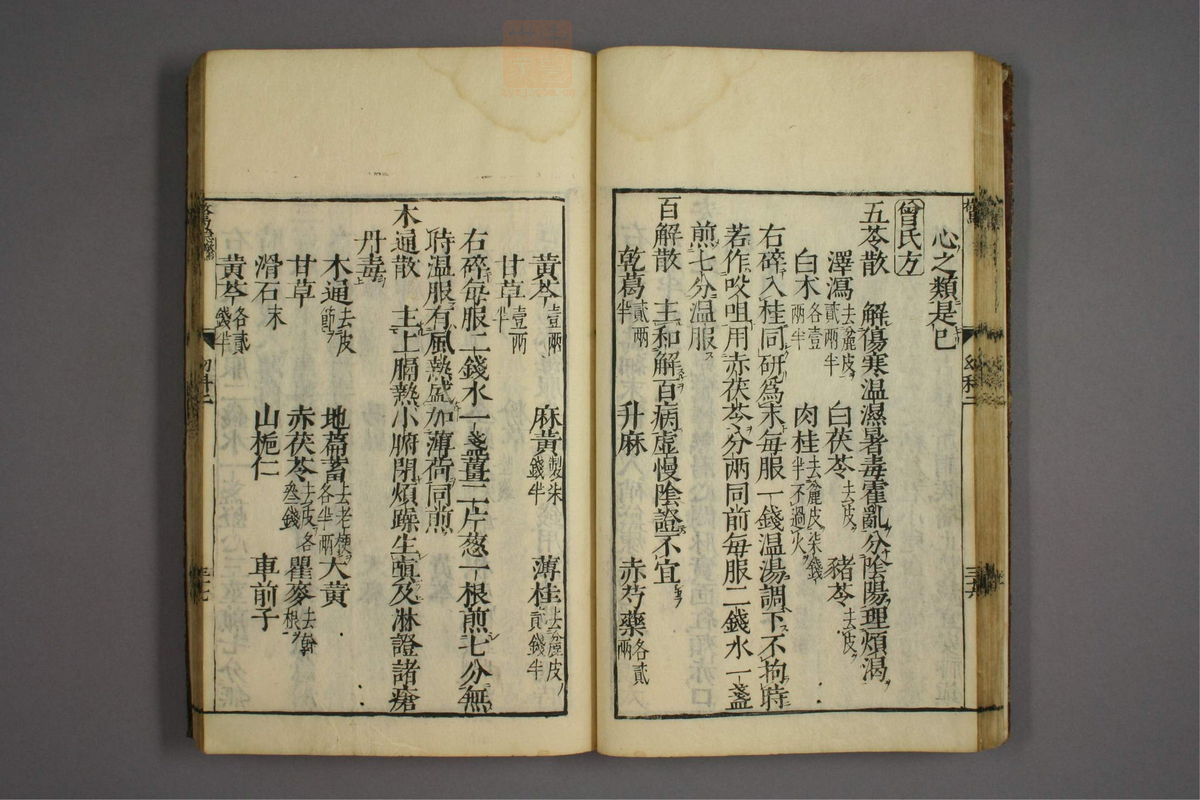 心之類是已
曾氏方
五苓散 解傷寒温濕暑毒霍亂分陰陽理煩渴
澤瀉去麄皮貳兩半 白茯苓去皮 豬苓去皮
白朮各壹兩半 肉桂去麄皮柒錢半不過火
右碎入桂同研爲末每服一錢温湯調下不拘時
若作㕮咀用赤茯苓分兩同前每服二錢水一盞
煎七分温服
百解散 主和解百病虚慢陰證不宜
乾葛貳兩半 升麻 赤芍藥各貳兩
黄芩壹兩 麻黄製柒錢半 薄桂去麄皮貳錢半
甘草壹兩半
右碎每服二錢水一盞薑二片葱一根煎七分無
時温服有風熱盛加薄荷同煎
木通散 主上膈熱小腑閉煩躁生嗔及淋證諸瘡
丹毒
木通去皮節 地萹蓄去老梗各半兩 大黄
甘草 赤茯苓去皮各叁錢 瞿麥去幹根
滑石末 山梔仁 車前子
黄芩各貳錢半
幼科二
幼科二